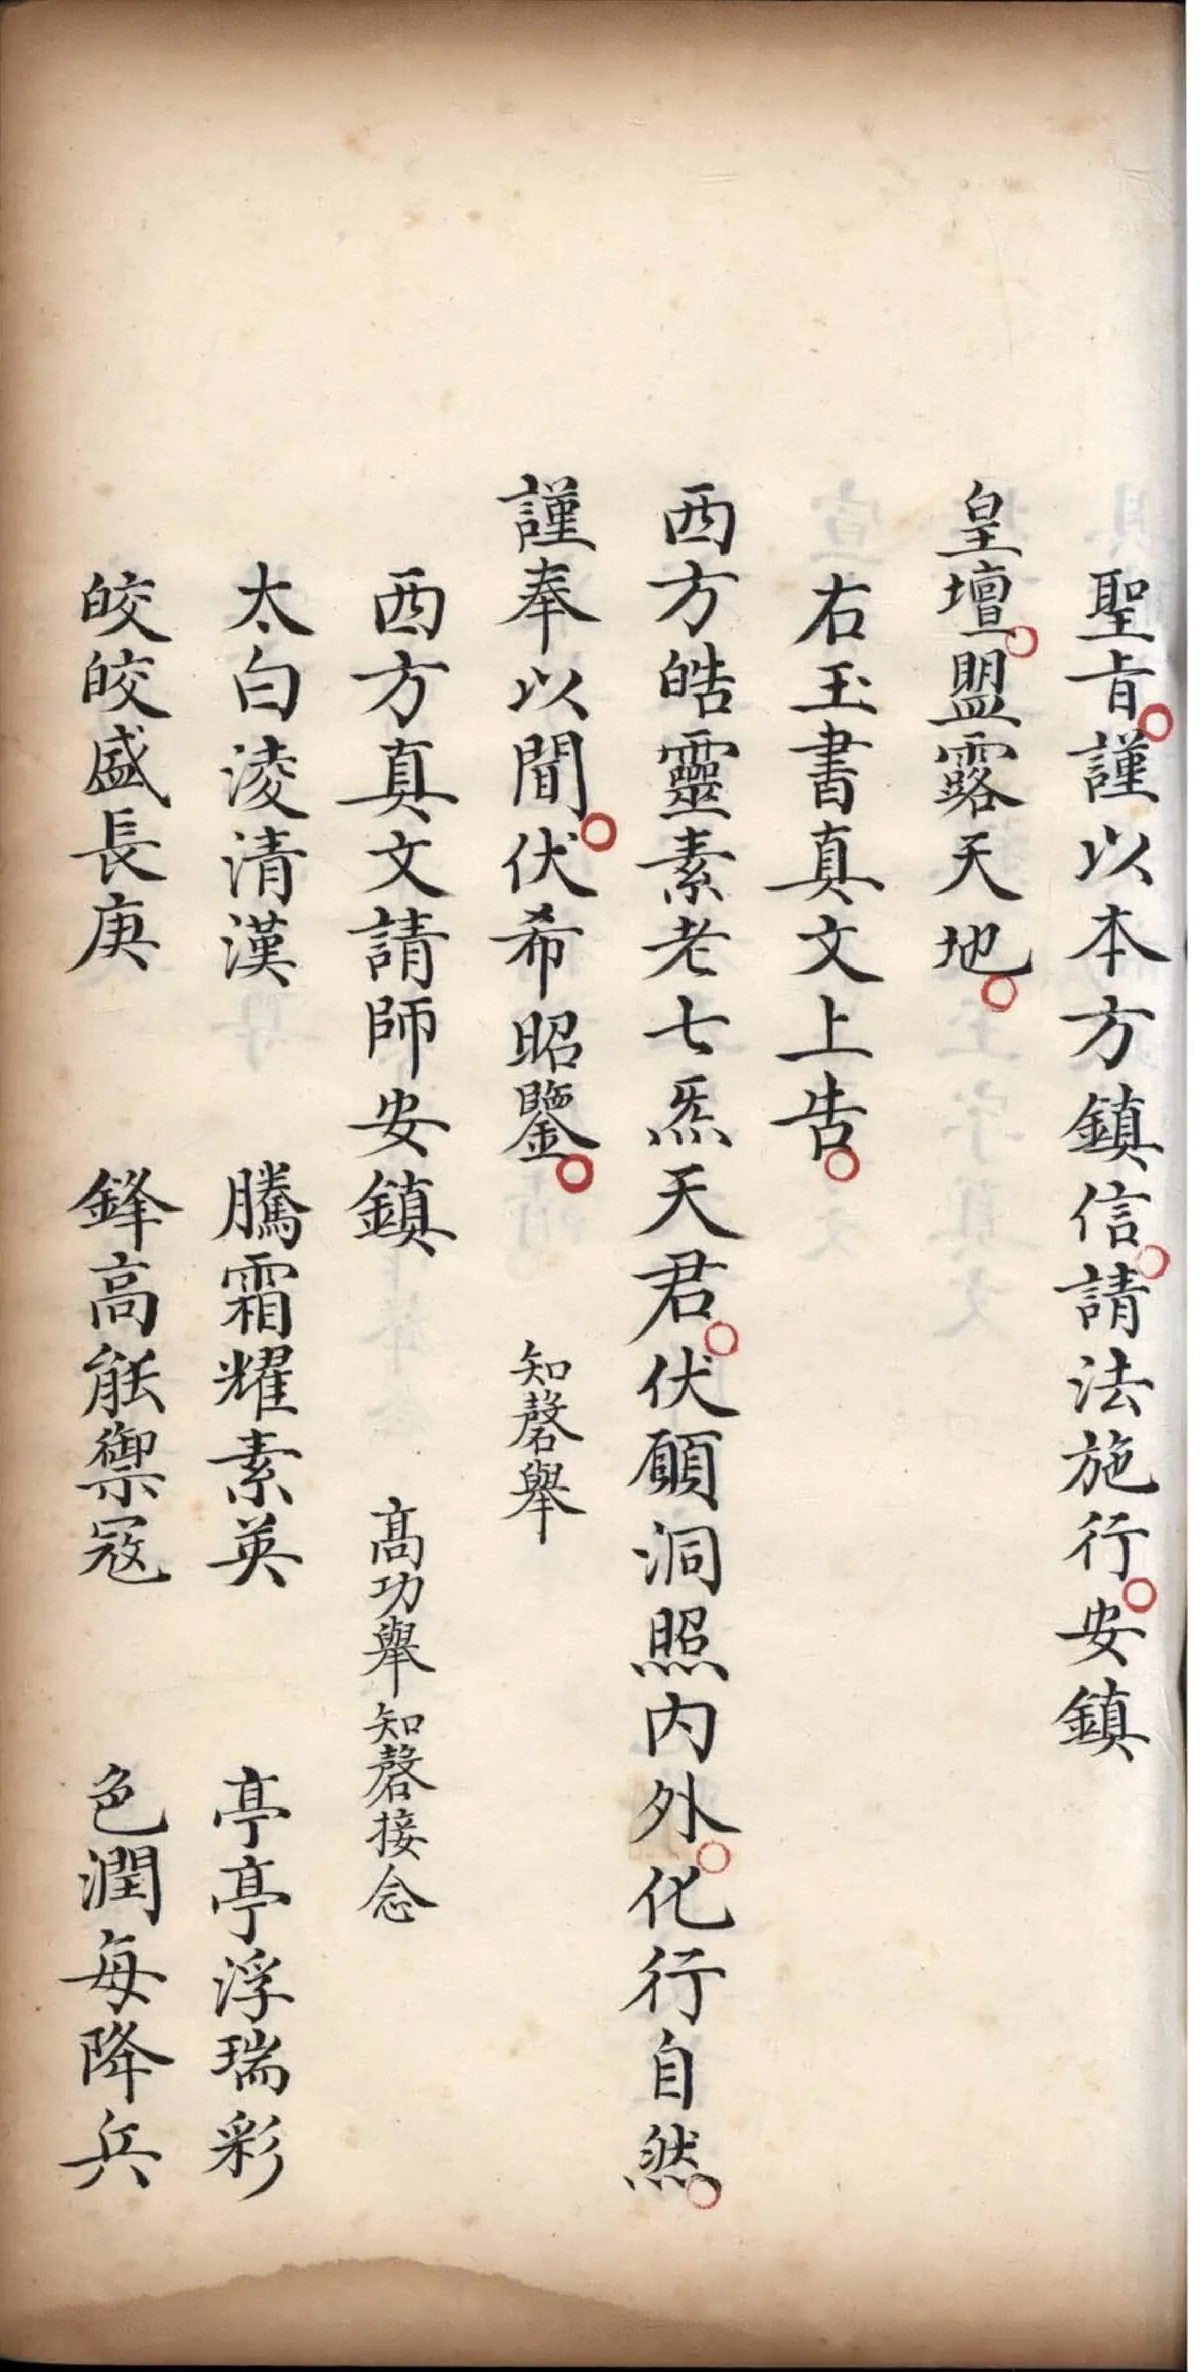 聖旨謹以本方鎮信請法施行安鎮
皇壇盟露天地
右玉書真文上告
西方皓靈素老七炁天君伏願洞照內外化行自然
謹奉以聞伏希昭鑒 知磬舉
西方真文請師安鎮 高功舉知磬接念
太白淩清漢 騰霜耀素英 亭亭浮瑞彩
皎皎盛長庚 鋒高能禦寇 色潤每降兵